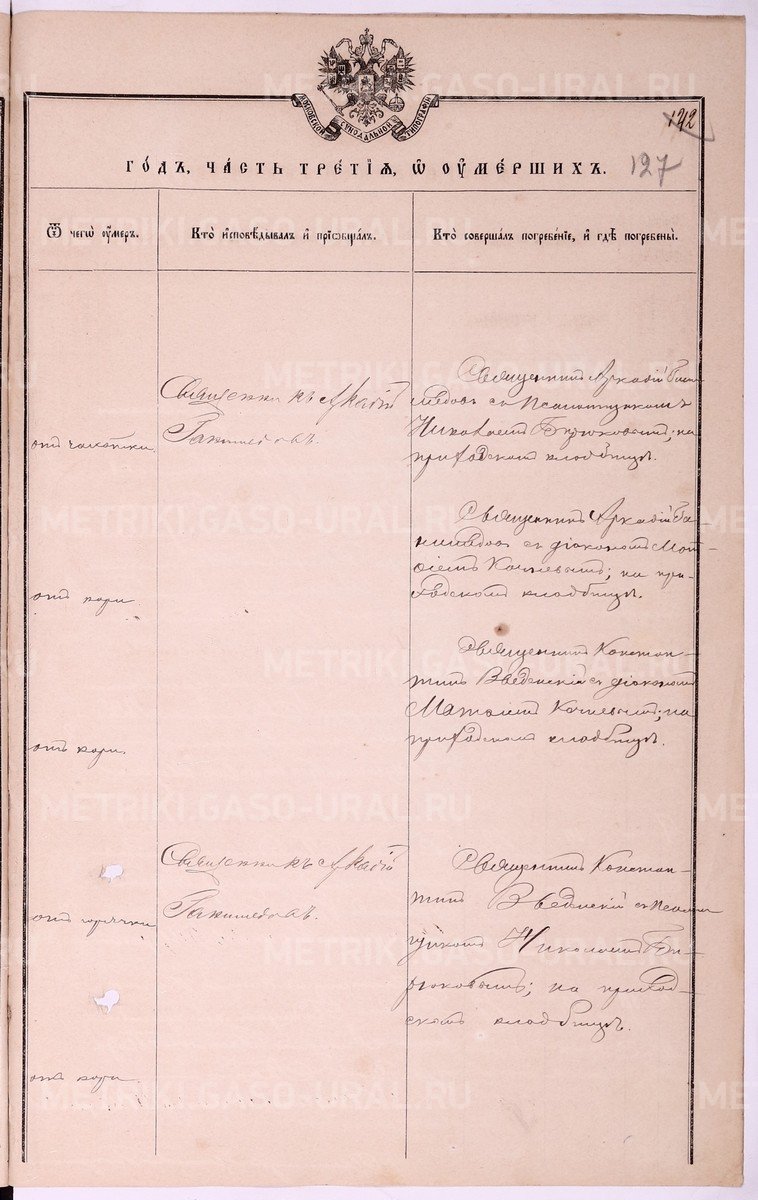 МОСКОВСКОЙ СѴНОДАЛЬНОЙ ТИПОГРАФІИ
142
127
ГО́ДЪ, ЧА́СТЬ ТРЕ́ТІѦ, Ѡ҆ ОУ҆МЕ́РШИХЪ.
Ѿ чегѡ̀ оу҆́меръ.
Кто̀ и҆сповѣ́дывалъ и҆ прїѡбща́лъ.
Кто̀ соверша́лъ погребе́нїе, и҆ гдѣ̀ погребены̀.
отъ чахотки
Священникъ Аркадій
Гаккимедовъ.
Священникъ Аркадій
съ Псаломщикомъ
Николаемъ Бирюковымъ; на
приходскомъ кладбищѣ.
отъ кори.
Священникъ Аркадій
съ діакономъ Мат-
ѳіемъ; на при-
ходскомъ кладбищѣ.
отъ кори.
Священникъ Констан-
тинъ Введенскій съ діакономъ
на
приходскомъ кладбищѣ.
отъ горячки
Священникъ Аркадій
Священникъ Констан-
тинъ Введенскій съ Псалом-
щикомъ Николаемъ Би-
рюковымъ; на приход-
скомъ кладбищѣ.
отъ кори.
METRIKI.GASO-URAL.RU